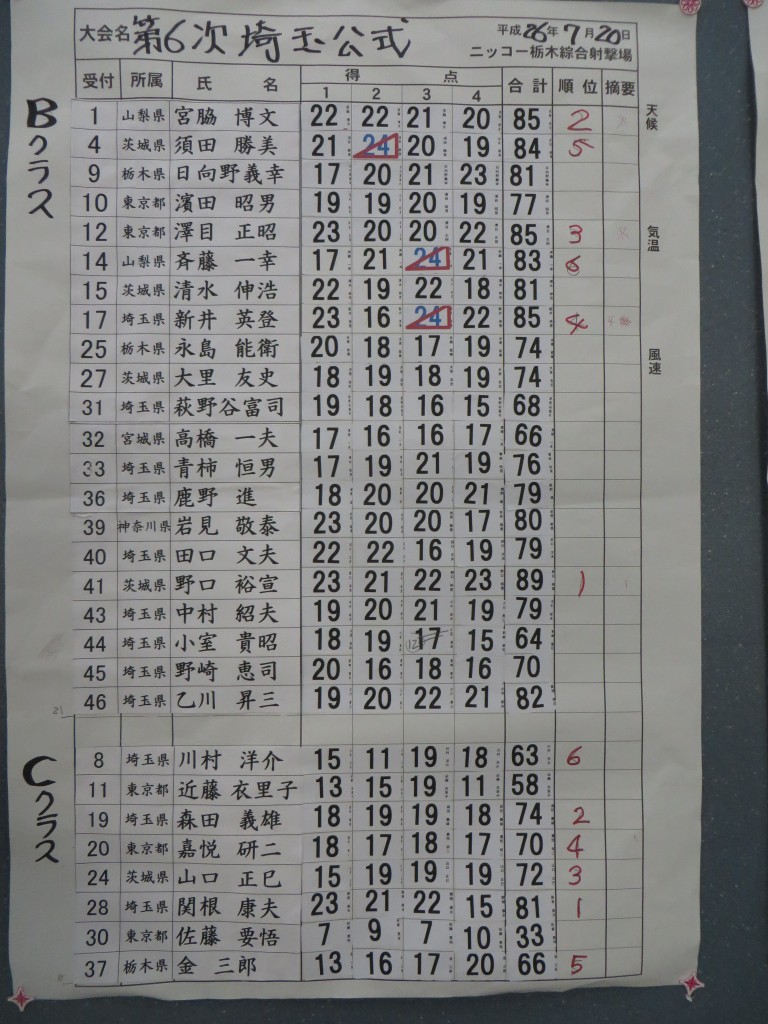 大会名 第6次埼玉公式 平成26年7月20日
ニッコー栃木綜合射撃場
受付 所属 氏 名 得 点 合計 順位 摘要
1 2 3 4
Bクラス
天候
気温
風速
1 山梨県 宮脇 博文 22 22 21 20 85 2
4 茨城県 須田 勝美 21 24 20 19 84 5
9 栃木県 日向野義幸 17 20 21 23 81
10 東京都 濱田 昭男 19 19 20 19 77
12 東京都 澤目 正昭 23 20 20 22 85 3
14 山梨県 斉藤 一幸 17 21 24 21 83 6
15 茨城県 清水 伸浩 22 19 22 18 81
17 埼玉県 新井 英登 23 16 24 22 85 4
25 栃木県 永島 能衛 20 18 17 19 74
27 茨城県 大里 友史 18 19 18 19 74
31 埼玉県 萩野谷富司 19 18 16 15 68
32 宮城県 高橋 一夫 17 16 16 17 66
33 埼玉県 青柿 恒男 17 19 21 19 76
36 埼玉県 鹿野 進 18 20 20 21 79
39 神奈川県 岩見 敬泰 23 20 20 17 80
40 埼玉県 田口 文夫 22 22 16 19 79
41 茨城県 野口 裕宣 23 21 22 23 89 1
43 埼玉県 中村 紹夫 19 20 21 19 79
44 埼玉県 小室 貴昭 18 19 17 15 64
45 埼玉県 野崎 恵司 20 16 18 16 70
46 埼玉県 乙川 昇三 19 20 22 21 82
21
Cクラス
8 埼玉県 川村 洋介 15 11 19 18 63 6
11 東京都 近藤 衣里子 13 15 19 11 58
19 埼玉県 森田 義雄 18 19 19 18 74 2
20 東京都 嘉悦 研二 18 17 18 17 70 4
24 茨城県 山口 正巳 15 19 19 19 72 3
28 埼玉県 関根 康夫 23 21 22 15 81 1
30 東京都 佐藤 要悟 7 9 7 10 33
37 栃木県 金 三郎 13 16 17 20 66 5